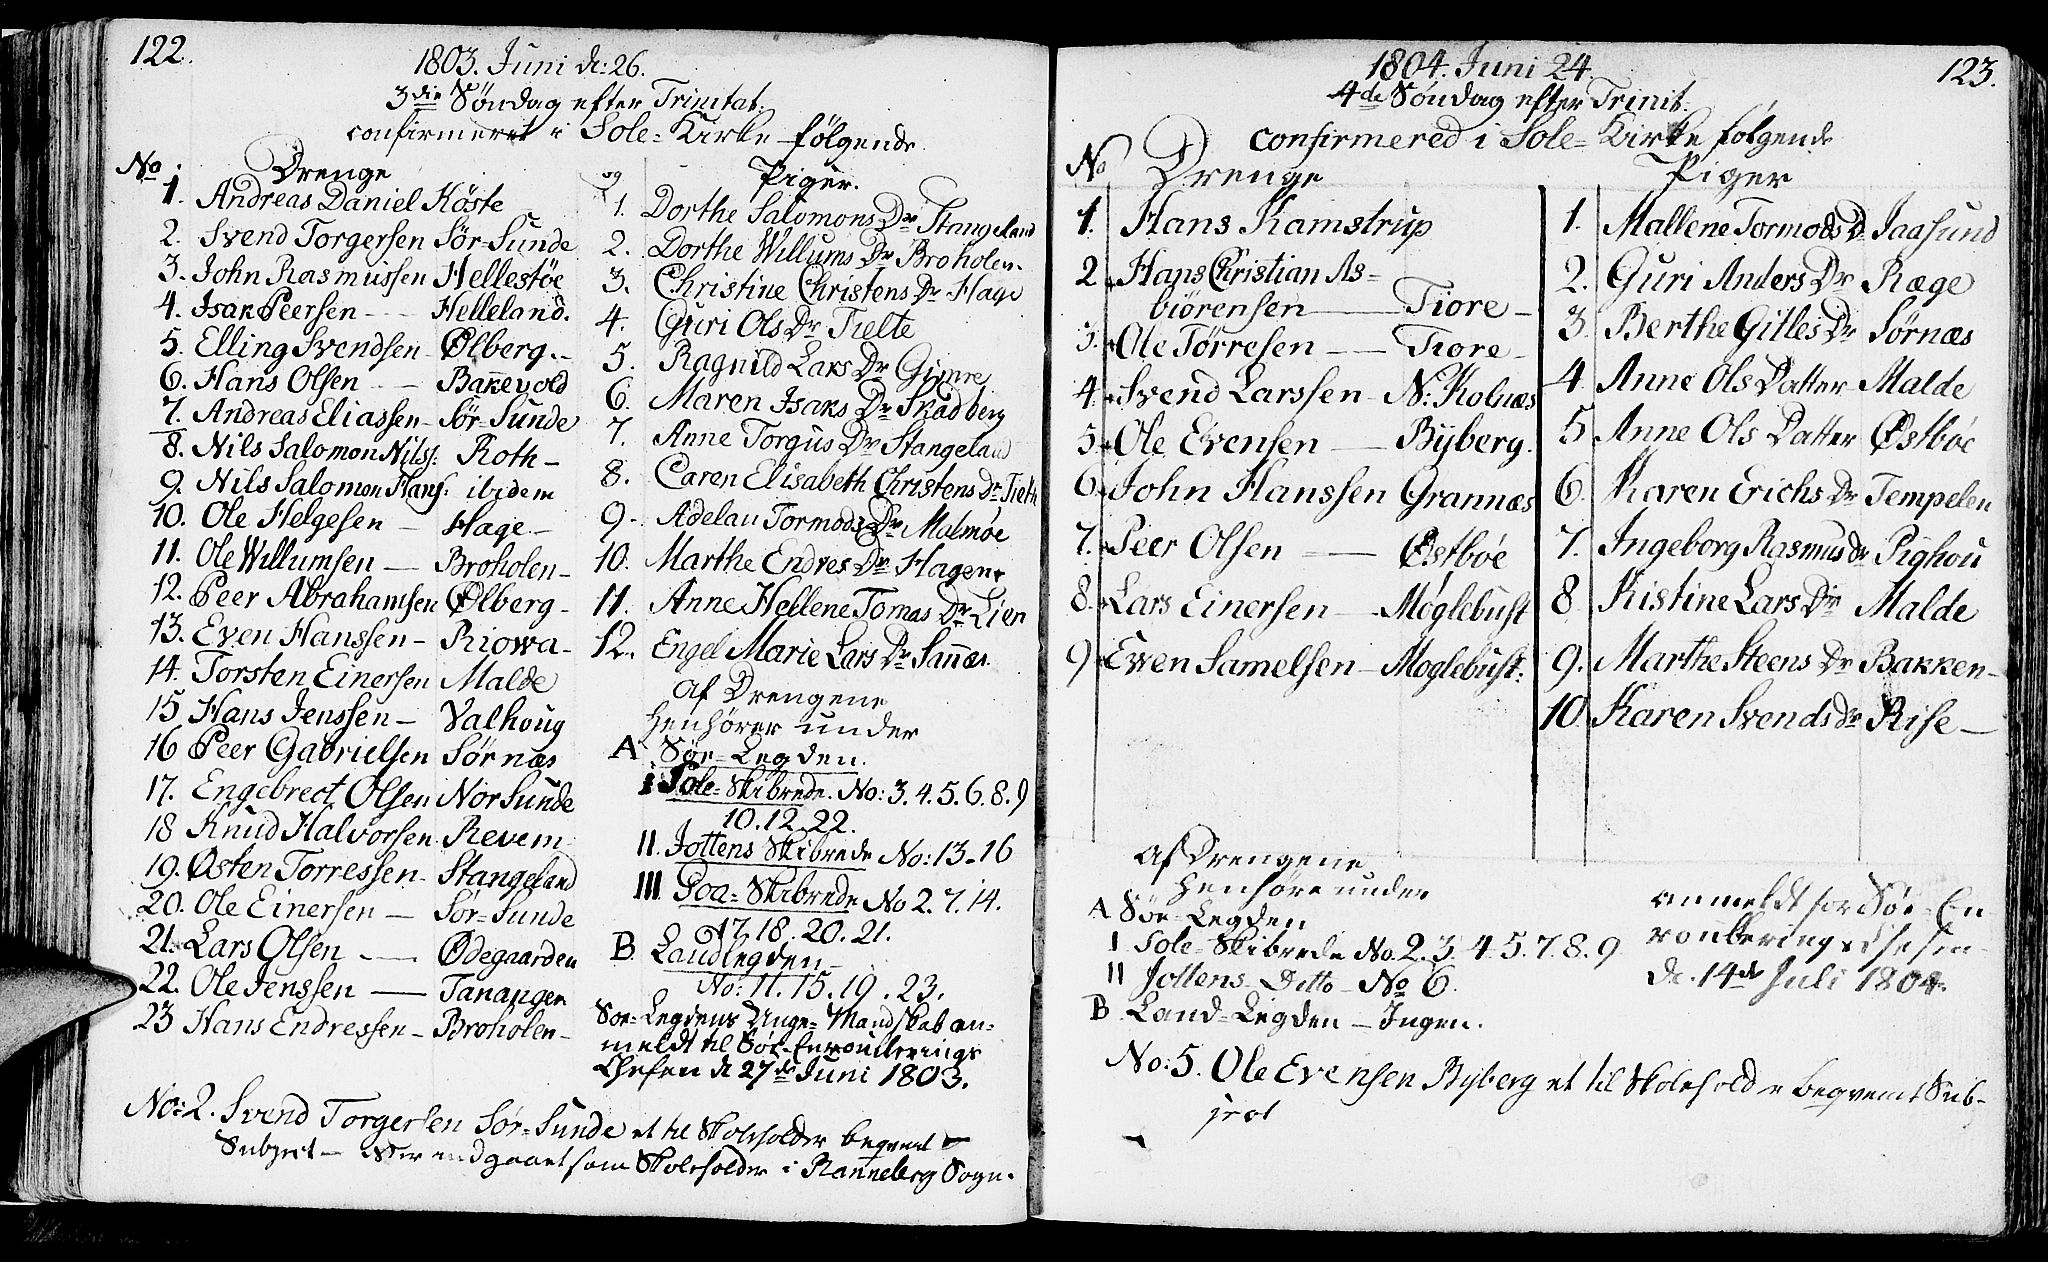 122.
1803. Juni d: 26.
3die Søndag efter Trinitat:
confirmeret i Sole- Kirke følgende
No. Drenge
1. Andreas Daniel Köste
2. Svend Torgersen Sør-Sunde
3. John Rasmussen Hellestøe
4. Isak Peersen - - Helleland.
5. Elling Svendsen - Ølberg. -
6. Hans Olsen - - Bakkevold
7. Andreas Eliassen - Sør-Sunde
8. Nils Salomon Nilss: Roth -
9. Nils Salomon Hans: ibidem
10. Ole Helgesen - Hage -
11. Ole Willumsen - Broholen -
12. Peer Abrahamsen Ølberg -
13. Even Hanssen - Riowa -
14. Torsten Einersen Malde
15 Hans Jenssen - Valhoug
16 Peer Gabrielsen Sørnæs
17. Engebrect Olsen Nor Sunde
18 Knud Halvorsen Revem
19. Østen Torressen - Stangeland
20. Ole Einersen - Sør-Sunde
21. Lars Olsen - Ødegaarden
22. Ole Jenssen - Tananger
23 Hans Endressen - Broholen -
og Piger.
1. Dorthe Salomons Dr Stangeland
2. Dorthe Willums Dr Broholen.
3. Christine Christens Dr Hage
4. Guri Ols Dr Tielte
5. Ragnild Lars Dr Gimre
6. Maren Isaks Dr Skadberg
7. Anne Torgus Dr Stangeland
8. Caren Elisabeth Christens Dr Tielte
9. Adelau Tormods Dr Malmøe
10. Marthe Endres Dr Hagen
11. Anne Hellene Tomas Dr Lien
12. Engel Marie Lars Dr Sannæs
Af Drengene
henhører under
A Søe-Legden.
I Sole-Skibrede. No: 3. 4. 5. 6. 8. 9
10. 12. 22.
II. Jottens Skibrede No: 13. 16
III Goa-Skibrede No 2. 7. 14.
17. 18. 20. 21.
B Landlegden
No: 11. 15. 19. 23.
Søe-Legdens Unge-Mandskab an-
meldt til Søe-Enroullerings
Chefen d 27de Juni 1803.
No: 2. Svend Torgersen Sør-Sunde et til Skoleholder beqvemt
Subject - er indgaaet som Skoleholder i Ranneberg Sogn.
123.
1804. Juni 24.
4de Søndag efter Trinit:
confirmered i Sole- Kirke følgende
No Drenge
1. Hans Kamstrup
2 Hans Christian As-
biørensen - Tiore -
3. Ole Törresen - Tiore -
4. Svend Larssen - N: Kolnæs
5. Ole Evensen - Byberg.
6. John Hanssen Grannæs
7. Peer Olsen - Østbøe
8. Lars Einersen - Møglebust
9 Even Samelsen - Møglebust:
Piger
1. Mallene Tormods D. Jaasund
2. Guri Anders Dr Ræge
3. Berthe Gilles Dr Sørnæs
4. Anne Ols Datter Malde
5 Anne Ols Datter Østbøe
6. Karen Erichs Dr Tempelen
7. Ingeborg Rasmus dr Pighou
8 Kistine Lars Dr Malde
9. Marthe Steens Dr Bakken -
10. Karen Svends dr Rise -
Af Drengene
henhøre under
A Søe-Legden
I Sole-Skibrede No. 2. 3. 4. 5. 7. 8. 9
II Jottens - Ditto - No 6.
B Land-Legden - Ingen.
anmeldt for Søe-En-
roulerings Chefen
d. 14de Juli 1804.
No: 5. Ole Evensen Byberg et til Skoleholder beqvemt Sub-
ject